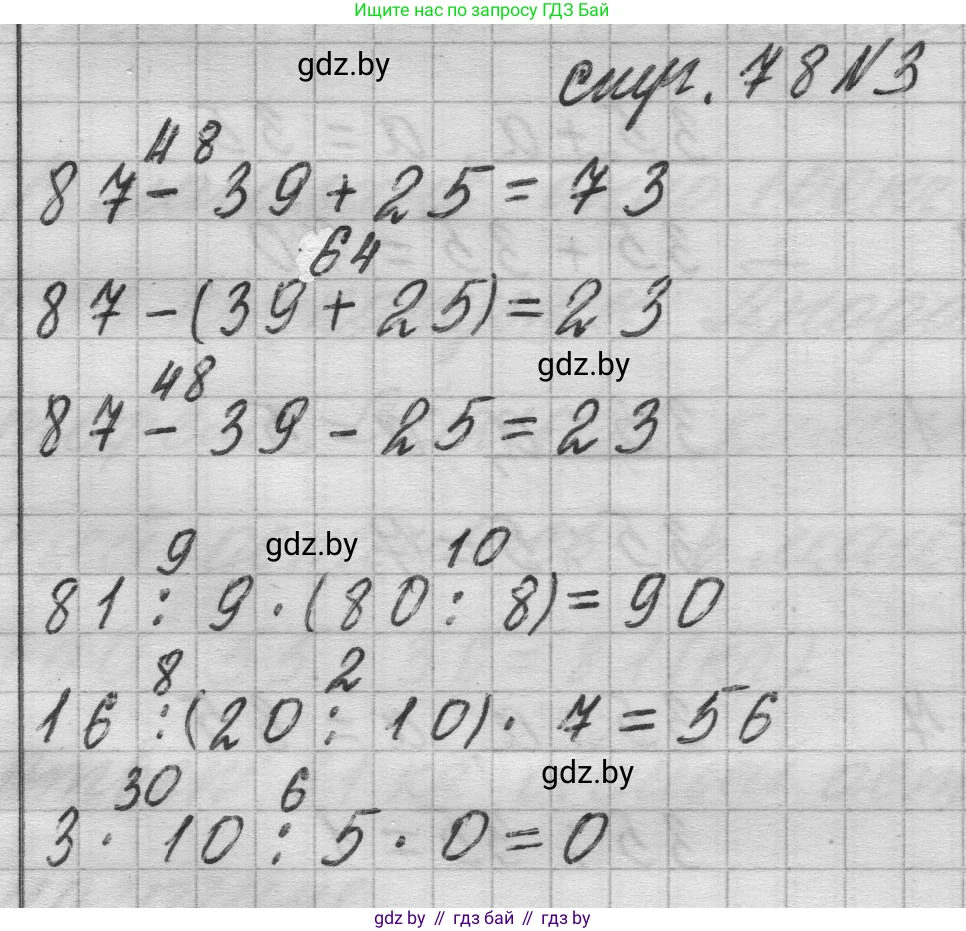 Ищите нас по запросу ГДЗ Бай
gdz.by
стр. 78 №3
48
87 - 39 + 25 = 73
64
87 - (39 + 25) = 23
gdz.by
48
87 - 39 - 25 = 23
9 gdz.by 10
81 : 9 · (80 : 8) = 90
8 2
16 : (20 : 10) · 7 = 56
gdz.by
30 6
3 · 10 : 5 · 0 = 0
gdz by // гдз бай // gdz by